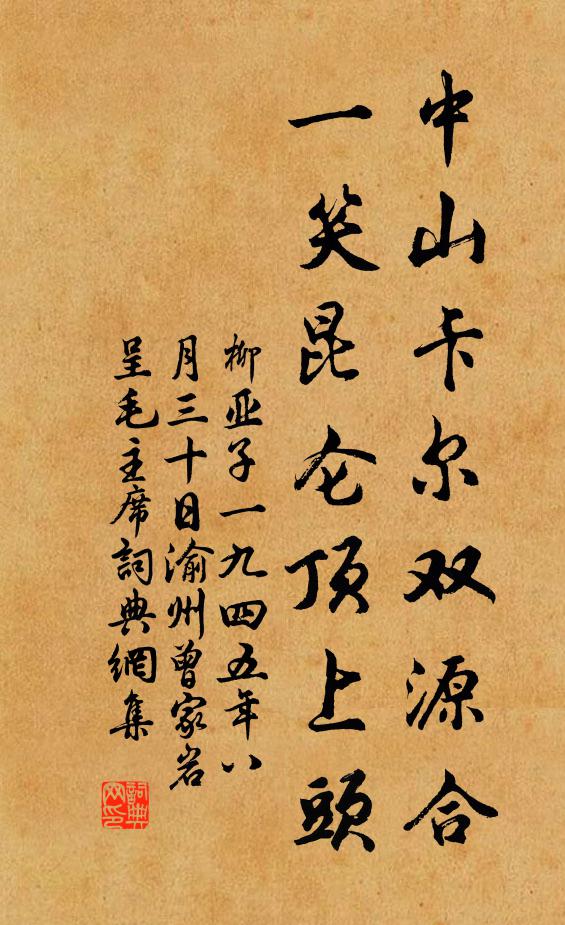 中山卡尔双源合
一笑昆仑顶上頭
柳亚子一九四五年八
月三十日渝州曾家岩
呈毛主席詞典網集
詞典
网印